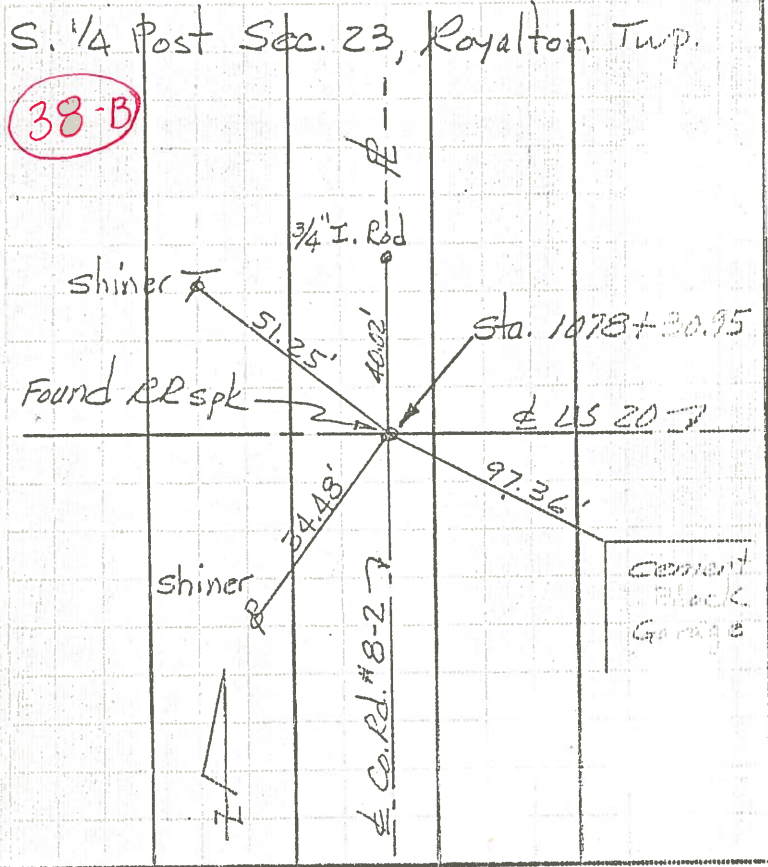 S. 1/4 Post Sec. 23, Royalton Twp.
38-B
℄
3/4" I. Rod
shiner
51.25'
40.02'
Sta. 1078+30.95
Found RR spk
℄ US 20
97.36'
34.48'
shiner
Cement
Block
Garage
℄ Co. Rd. #8-2